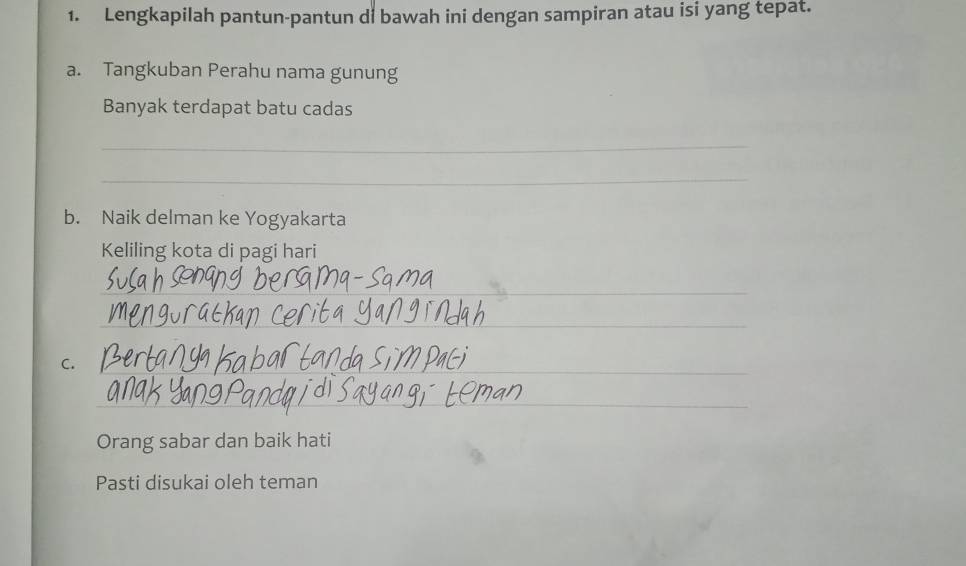 1. Lengkapilah pantun-pantun di bawah ini dengan sampiran atau isi yang tepat.
a. Tangkuban Perahu nama gunung
Banyak terdapat batu cadas
b. Naik delman ke Yogyakarta
Keliling kota di pagi hari
Susah senang berama-sama
menguratkan cerita yang indah
c. Bertanya kabar tanda simpati
anak yang Pandai di sayangi teman
Orang sabar dan baik hati
Pasti disukai oleh teman